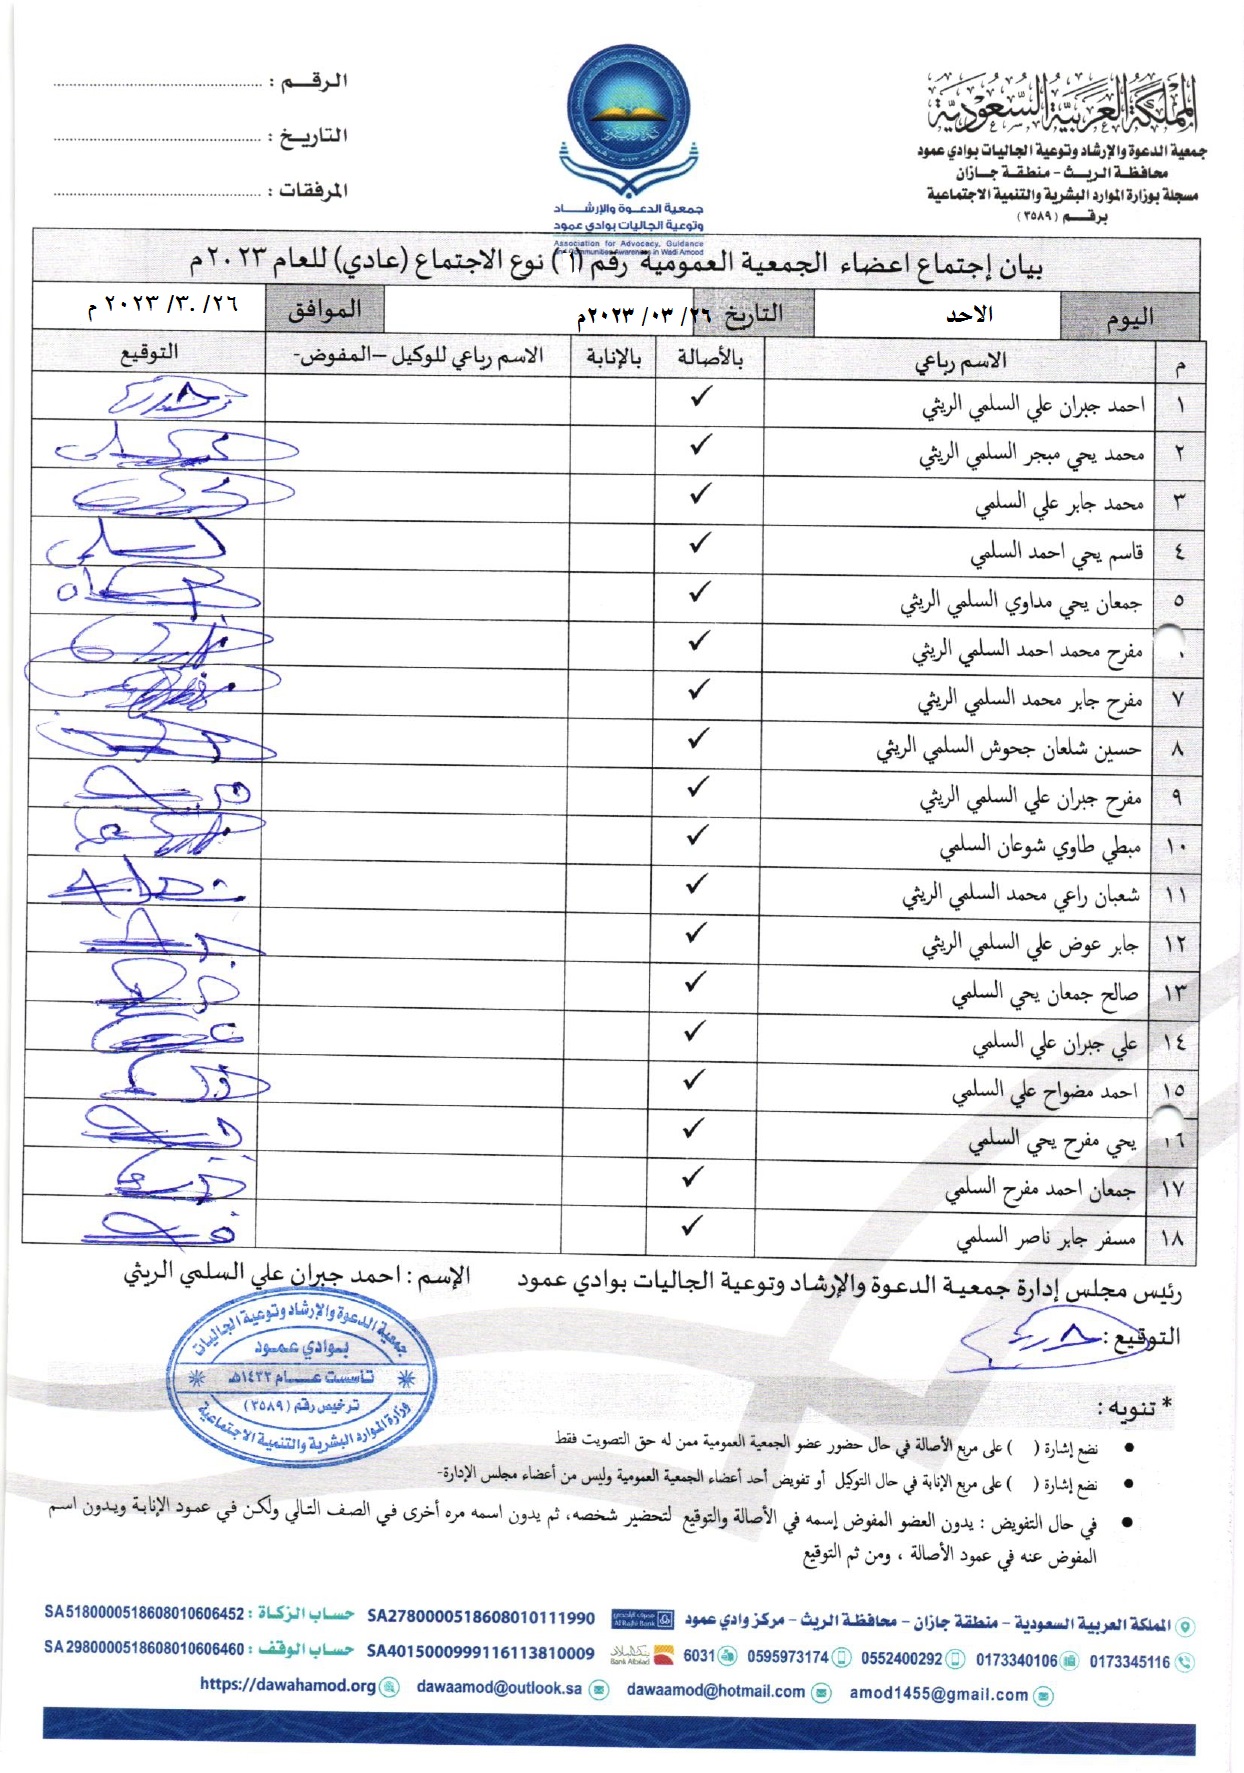 المملكة العربية السعودية
جمعية الدعوة والإرشاد وتوعية الجاليات بوادي عمود
محافظة الريث - منطقة جازان
مسجلة بوزارة الموارد البشرية والتنمية الاجتماعية
برقم (٣٥٨٩)
جمعية الدعوة والإرشاد
وتوعية الجاليات بوادي عمود
Association for Advocacy, Guidance
Communities Awareness in Wadi Amood
الرقم : ........................
التاريخ : ........................
المرفقات : ........................
بيان إجتماع اعضاء الجمعية العمومية رقم (١) نوع الاجتماع (عادي) للعام ٢٠٢٣م
اليوم الاحد التاريخ ٢٦/ ٠٣/ ٢٠٢٣م الموافق ٢٦/ ٣٠/ ٢٠٢٣ م
م الاسم رباعي بالأصالة بالإنابة الاسم رباعي للوكيل –المفوض- التوقيع
١ احمد جبران علي السلمي الريثي ✓
٢ محمد يحي مبجر السلمي الريثي ✓
٣ محمد جابر علي السلمي ✓
٤ قاسم يحي احمد السلمي ✓
٥ جمعان يحي مداوي السلمي الريثي ✓
مفرح محمد احمد السلمي الريثي ✓
٧ مفرح جابر محمد السلمي الريثي ✓
٨ حسين شلعان جحوش السلمي الريثي ✓
٩ مفرح جبران علي السلمي الريثي ✓
١٠ مبطي طاوي شوعان السلمي ✓
١١ شعبان راعي محمد السلمي الريثي ✓
١٢ جابر عوض علي السلمي الريثي ✓
١٣ صالح جمعان يحي السلمي ✓
١٤ علي جبران علي السلمي ✓
١٥ احمد مضواح علي السلمي ✓
١٦ يحي مفرح يحي السلمي ✓
١٧ جمعان احمد مفرح السلمي ✓
١٨ مسفر جابر ناصر السلمي ✓
رئيس مجلس إدارة جمعية الدعوة والإرشاد وتوعية الجاليات بوادي عمود الإسم : احمد جبران علي السلمي الريثي
التوقيع :
جمعية الدعوة والإرشاد وتوعية الجاليات
بوادي عمود
تأسست عام ١٤٢٢هـ
ترخيص رقم (٣٥٨٩)
وزارة الموارد البشرية والتنمية الاجتماعية
* تنويه :
● نضع إشارة ( ) على مربع الأصالة في حال حضور عضو الجمعية العمومية ممن له حق التصويت فقط
● نضع إشارة ( ) على مربع الإنابة في حال التوكيل أو تفويض أحد أعضاء الجمعية العمومية وليس من أعضاء مجلس الإدارة-
● في حال التفويض : يدون العضو المفوض إسمه في الأصالة والتوقيع لتحضير شخصه، ثم يدون اسمه مره أخرى في الصف التالي ولكن في عمود الإنابة ويدون اسم
المفوض عنه في عمود الأصالة ، ومن ثم التوقيع
المملكة العربية السعودية - منطقة جازان - محافظة الريث - مركز وادي عمود مصرف الراجحي Al Rajhi Bank SA2780000518608010111990 حساب الزكاة : SA5180000518608010606452
0173345116 0173340106 0552400292 0595973174 6031 بنك البلاد Bank Albilad SA4015000999116113810009 حساب الوقف : SA2980000518608010606460
amod1455@gmail.com dawaamod@hotmail.com dawaamod@outlook.sa https://dawahamod.org